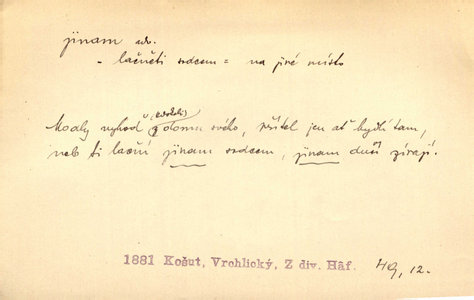 jinam adv.
- lačněti srdcem = na jiné místo
(modoli)
Modly vyhoď z domu svého, přítel jen ať bydlí tam,
neb ti lační jinam srdcem, jinam duší zírají.
1881 Košut, Vrchlický, Z div. Háf. 49, 12.